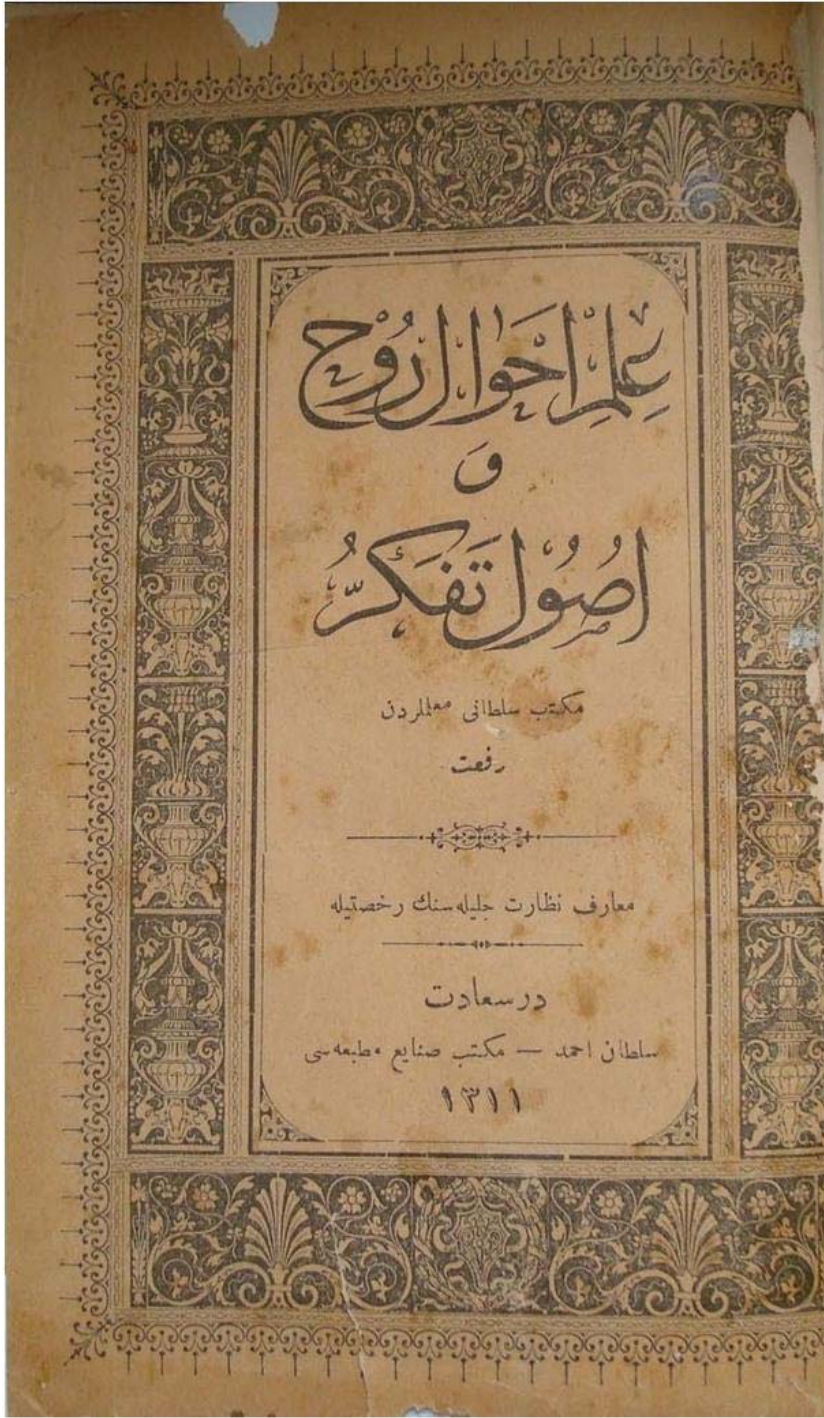 عِلمِ اَحوَالِ رُوح
وَ
اُصُولِ تَفَكُّر
مکتب سلطانی معلملردن
رفعت
معارف نظارت جلیله سنك رخصتیله
درسعادت
سلطان احمد — مکتب صنایع مطبعه سی
١٣١١